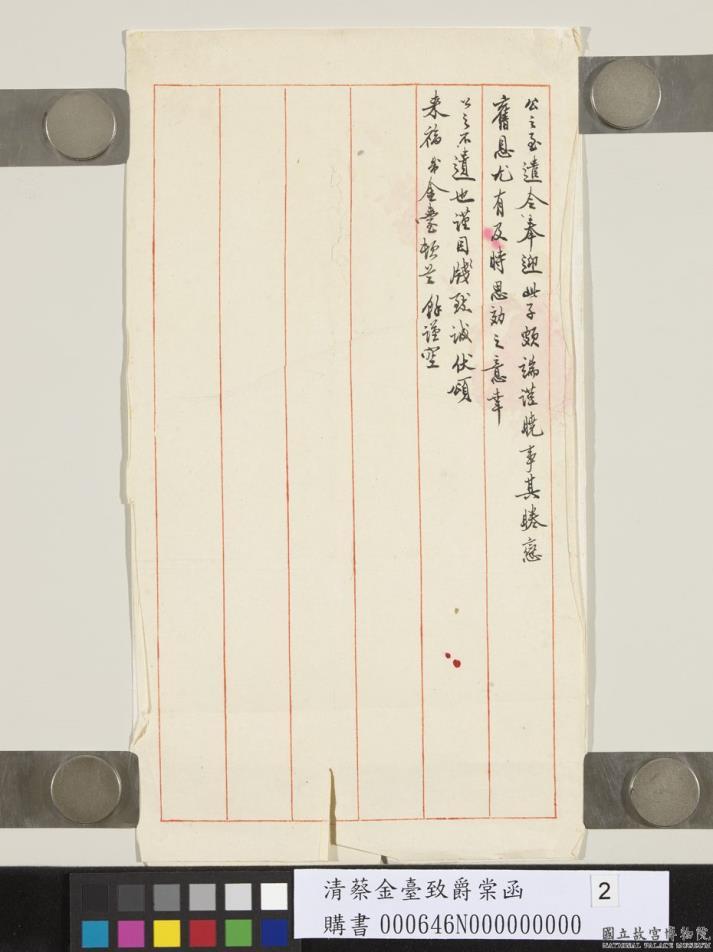 公之至遣令奉迎此子頗端謹曉事其睠戀
舊恩尤有及時思效之意幸
公之不遺也謹因牋致誠伏頌
来福弟金臺頓首 餘謹空
清蔡金臺致爵棠函
2
購書 000646N000000000
國立故宮博物院
NATIONAL PALACE MUSEUM